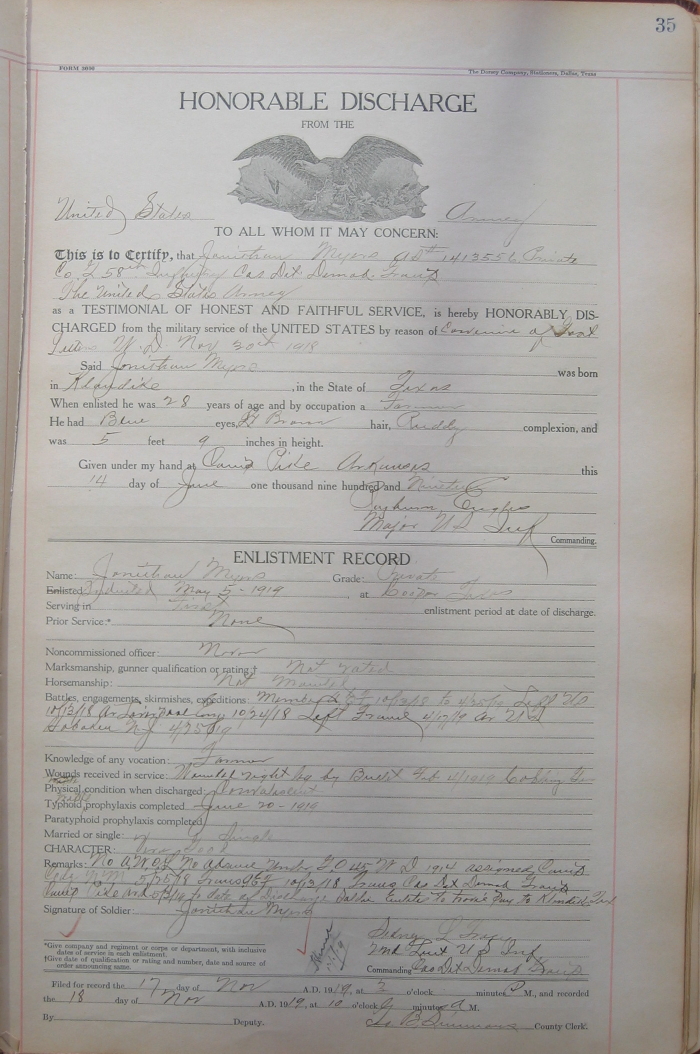 35
FORM 3090 The Dorsey Company, Stationers, Dallas, Texas
HONORABLE DISCHARGE
FROM THE
United States Army
TO ALL WHOM IT MAY CONCERN:
This is to Certify, that Jonithan Myers 1413556 Private
Co. 58th Cas Det Demob
The United States Army
as a TESTIMONIAL OF HONEST AND FAITHFUL SERVICE, is hereby HONORABLY DIS-
CHARGED from the military service of the UNITED STATES by reason of of
W. D. Nov 20th 1918
Said Jonithan Myers was born
in Klondike, in the State of Texas
When enlisted he was 28 years of age and by occupation a Farmer
He had Blue eyes, Lt Brown hair, Ruddy complexion, and
was 5 feet 9 inches in height.
Given under my hand at Camp Pike Arkansas this
14 day of June one thousand nine hundred and
Major US Inf
Commanding.
ENLISTMENT RECORD
Name: Jonithan Myers Grade: Private
Enlisted Inducted May 5-1919, at Cooper Texas
Serving in First enlistment period at date of discharge.
Prior Service:* None
Noncommissioned officer: Never
Marksmanship, gunner qualification or rating:† Not rated
Horsemanship: Not Mounted
Battles, engagements, skirmishes, expeditions: Member A.E.F. 10/13/18 to 4/25/19 Left US
10/13/18 Ar Liverpool Eng 10/24/18 Left France 4/12/19 Ar US
Hoboken N.J. 4/25/19
Knowledge of any vocation: Farmer
Wounds received in service: Wounded right leg by Bullet Feb 4/1919
Physical condition when discharged: Convalescent
Typhoid prophylaxis completed June 20-1919
Paratyphoid prophylaxis completed
Married or single: Single
CHARACTER: Very Good
Remarks: No A.W.O.L. No Absence Under G.O. 45 W D 1914 assigned Camp
Cody N.M. 5/25/18 Trans 10/13/18 Trans Cas Det Demob
Camp Pike Ark 5/3/19 to date of Discharge Soldier Entitled to Travel Pay to Klondike Tex
Signature of Soldier: Jonithan Myers
Sidney L
2nd Lieut U S Inf
Commanding Cas Det Demob
*Give company and regiment or corps or department, with inclusive
dates of service in each enlistment.
†Give date of qualification or rating and number, date and source of
order announcing same.
Filed for record the 17 day of Nov A.D. 1919, at 2 o'clock minutes P M., and recorded
the 18 day of Nov A.D. 1919, at 10 o'clock minutes A M.
By Deputy. County Clerk.